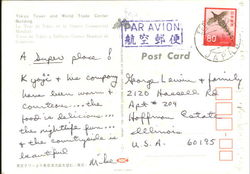 Tokyo Tower and World Trade Center
Building
PAR AVION
航空郵便
80
Post Card
A Super place!
Kyogi & his company
have been warm &
courteous... the
food is delicious...
the nightlife fun...
& the countryside is
beautiful
Mike
George Levine & family
2120 Hassell Rd
Apt # 209
Hoffman Estates
Illinois
U.S.A. 60195